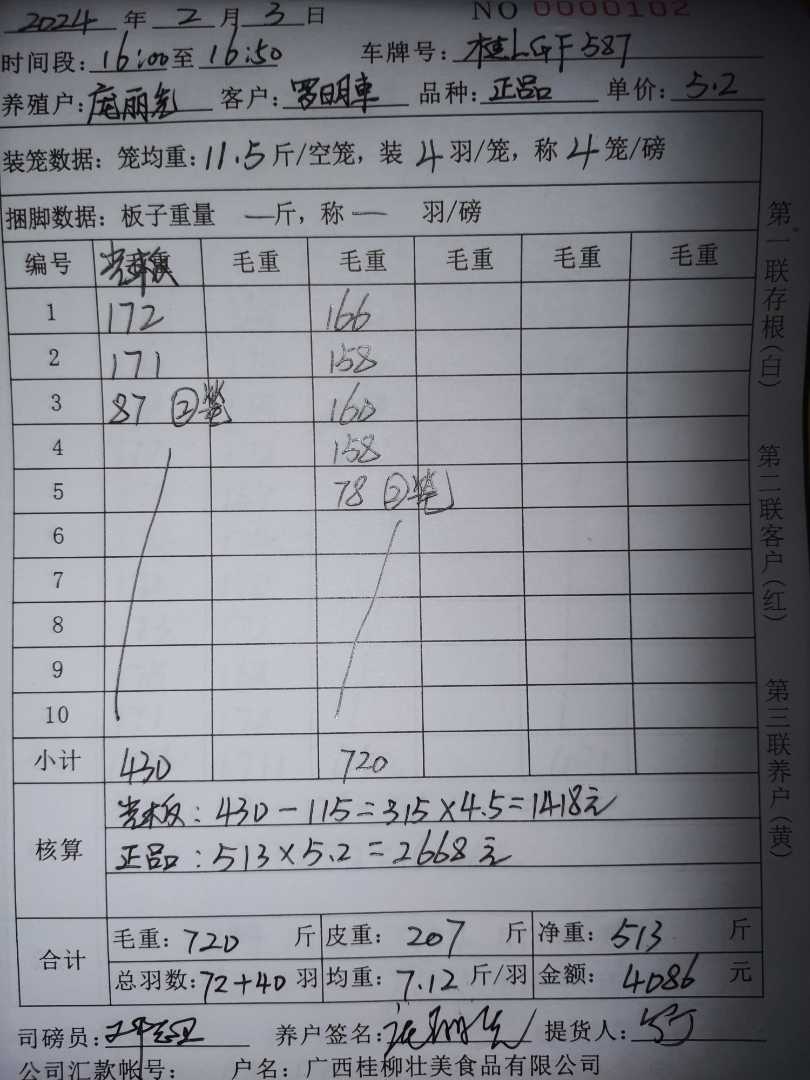 2024 年 2 月 3 日 NO 0000102
时间段: 16:00至 16:50 车牌号: 桂LGF587
养殖户: 庞丽 客户: 罗明車 品种: 正品 单价: 5.2
装笼数据: 笼均重: 11.5 斤/空笼, 装 4 羽/笼, 称 4 笼/磅
捆脚数据: 板子重量 — 斤, 称 — 羽/磅
编号 光板 毛重 毛重 毛重 毛重 毛重
1 172 166
2 171 158
3 87 ②笼 160
4 158
5 78 ②笼
6
7
8
9
10
小计 430 720
核算 光板: 430-115=315×4.5=1418元
正品: 513×5.2=2668元
合计 毛重: 720 斤 皮重: 207 斤 净重: 513 斤
总羽数: 72+40 羽 均重: 7.12 斤/羽 金额: 4086 元
司磅员: 养户签名: 提货人:
公司汇款帐号: 户名: 广西桂柳壮美食品有限公司
第一联存根(白) 第二联客户(红) 第三联养户(黄)